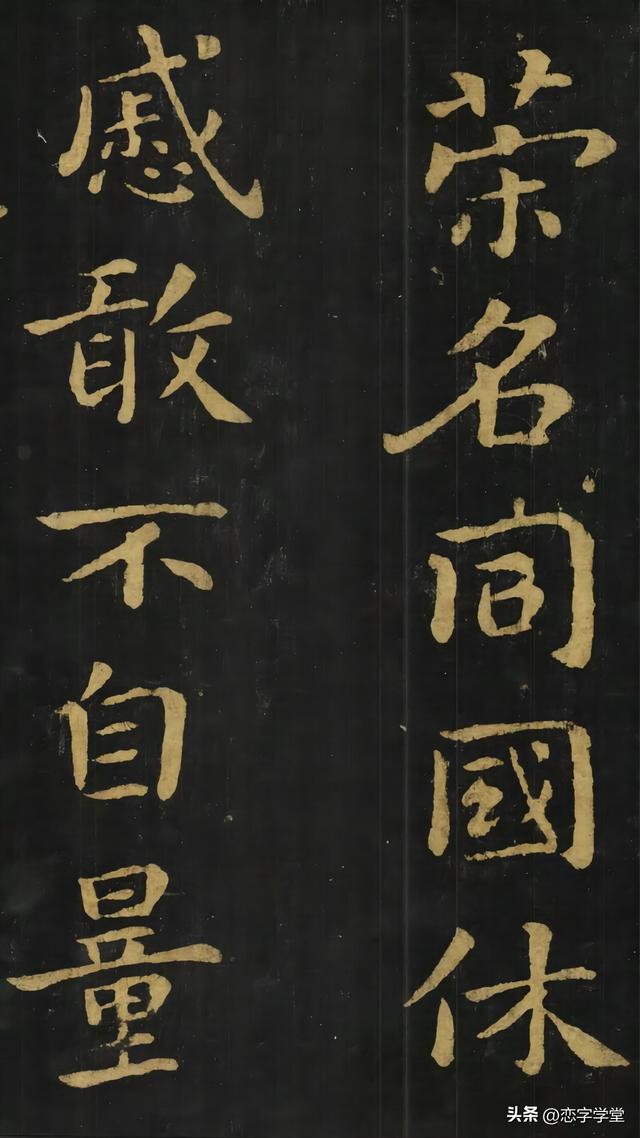 荣名同國休
慼敢不自量
头条 @恋字学堂